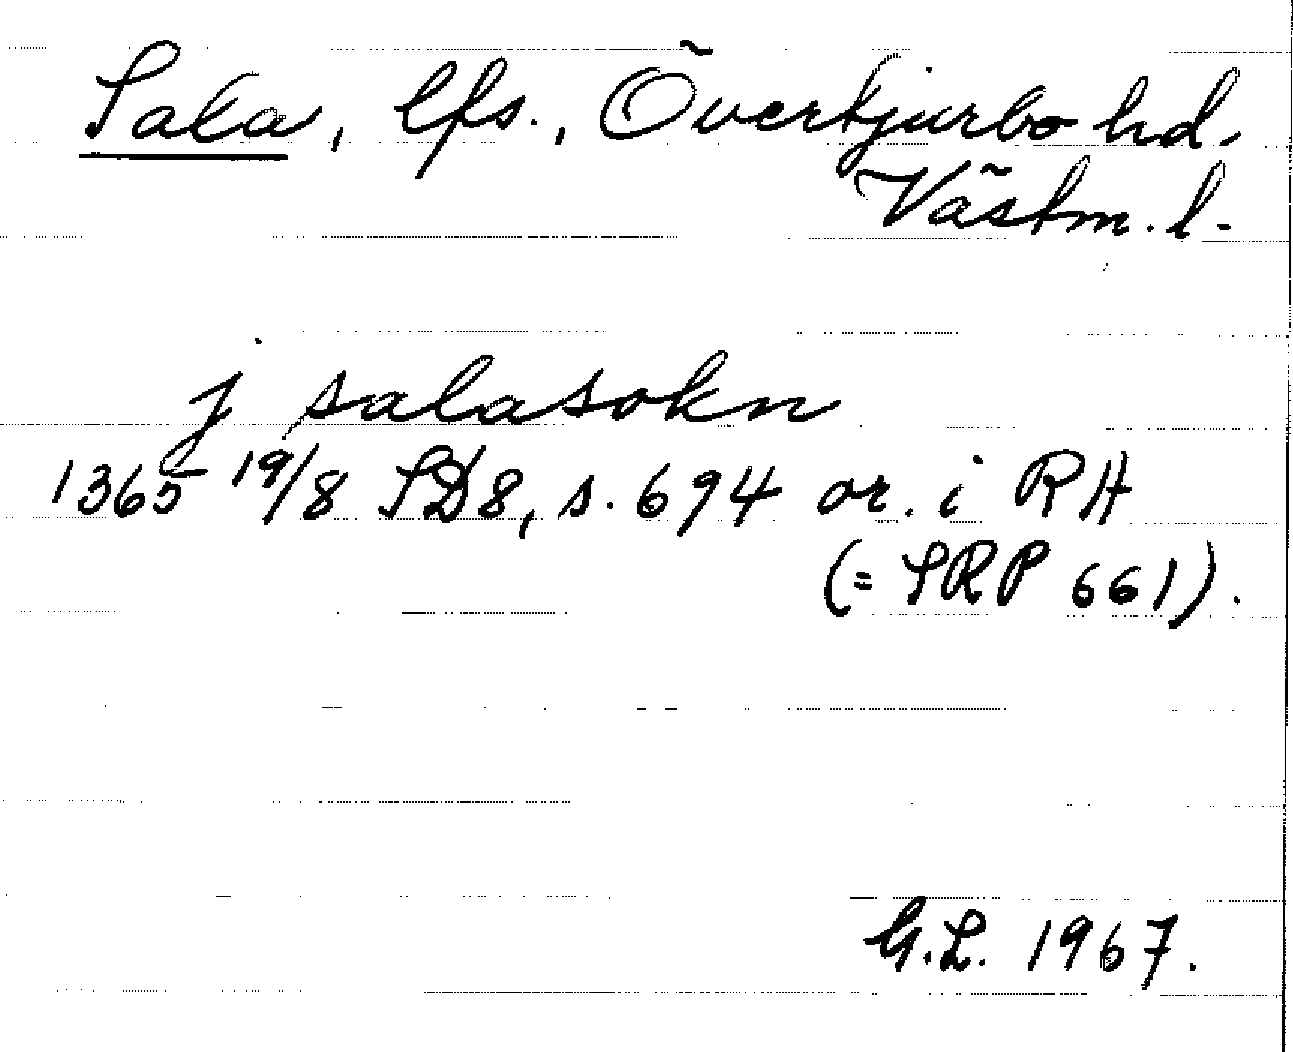 Sala, lfs., Övertjurbo hd.
Västm. l.
j salasokn
1365 19/8 SD8, s. 694 or. i RA
(= SRP 661).
G.L. 1967.